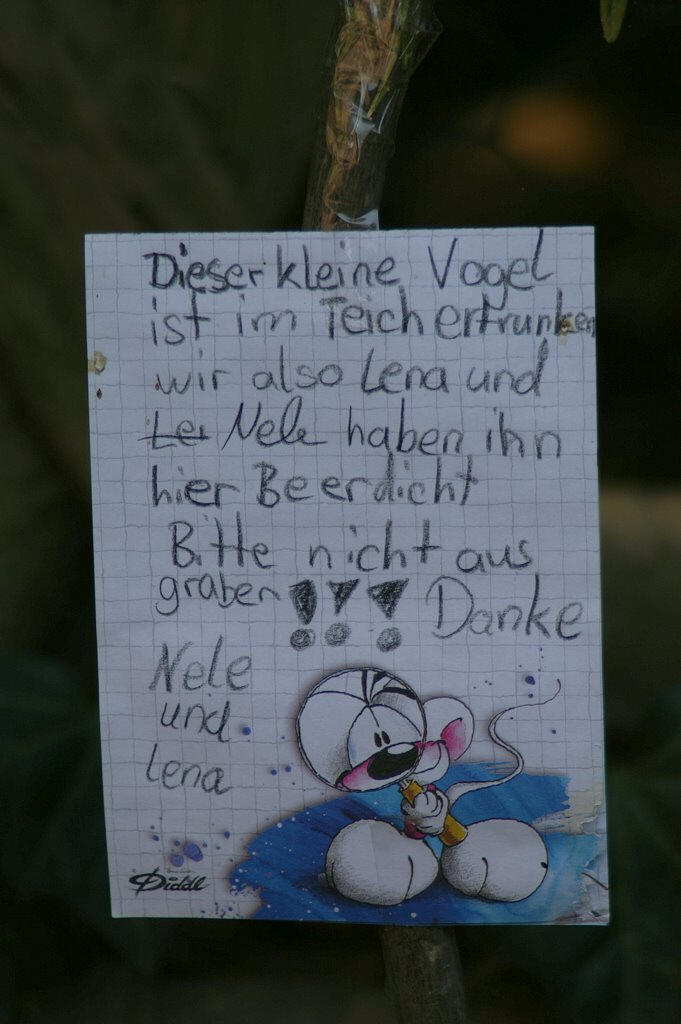 Dieser kleine Vogel
ist im Teich ertrunken
wir also Lena und
Le Nele haben ihn
hier Beerdicht
Bitte nicht aus
graben !!! Danke
Nele
und
Lena
Diddl